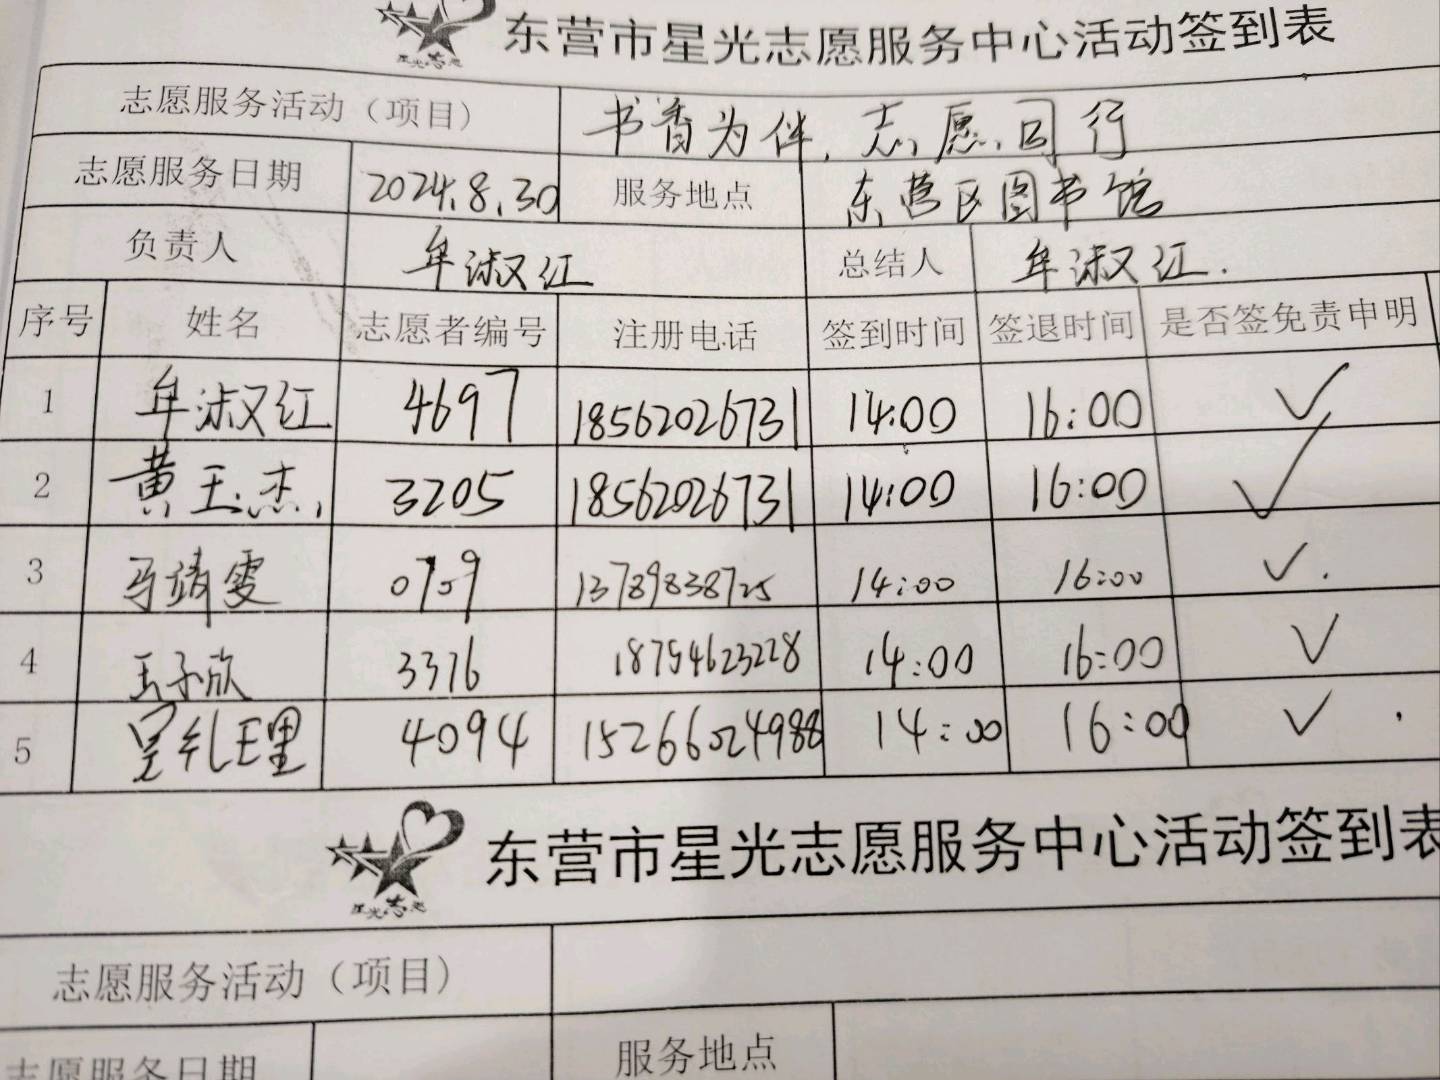 东营市星光志愿服务中心活动签到表
星光志愿
志愿服务活动（项目） 书香为伴，志愿同行
志愿服务日期 2024.8.30 服务地点 东营区图书馆
负责人 牟淑红 总结人 牟淑红.
序号 姓名 志愿者编号 注册电话 签到时间 签退时间 是否签免责申明
1 牟淑红 4697 18562026731 14:00 16:00 ✓
2 黄玉杰 3205 18562026731 14:00 16:00 ✓
3 马靖雯 0709 13789838725 14:00 16:00 ✓.
4 王子欣 3376 18754623228 14:00 16:00 ✓
5 4094 15266024988 14:00 16:00 ✓
东营市星光志愿服务中心活动签到表
星光志愿
志愿服务活动（项目）
志愿服务日期 服务地点